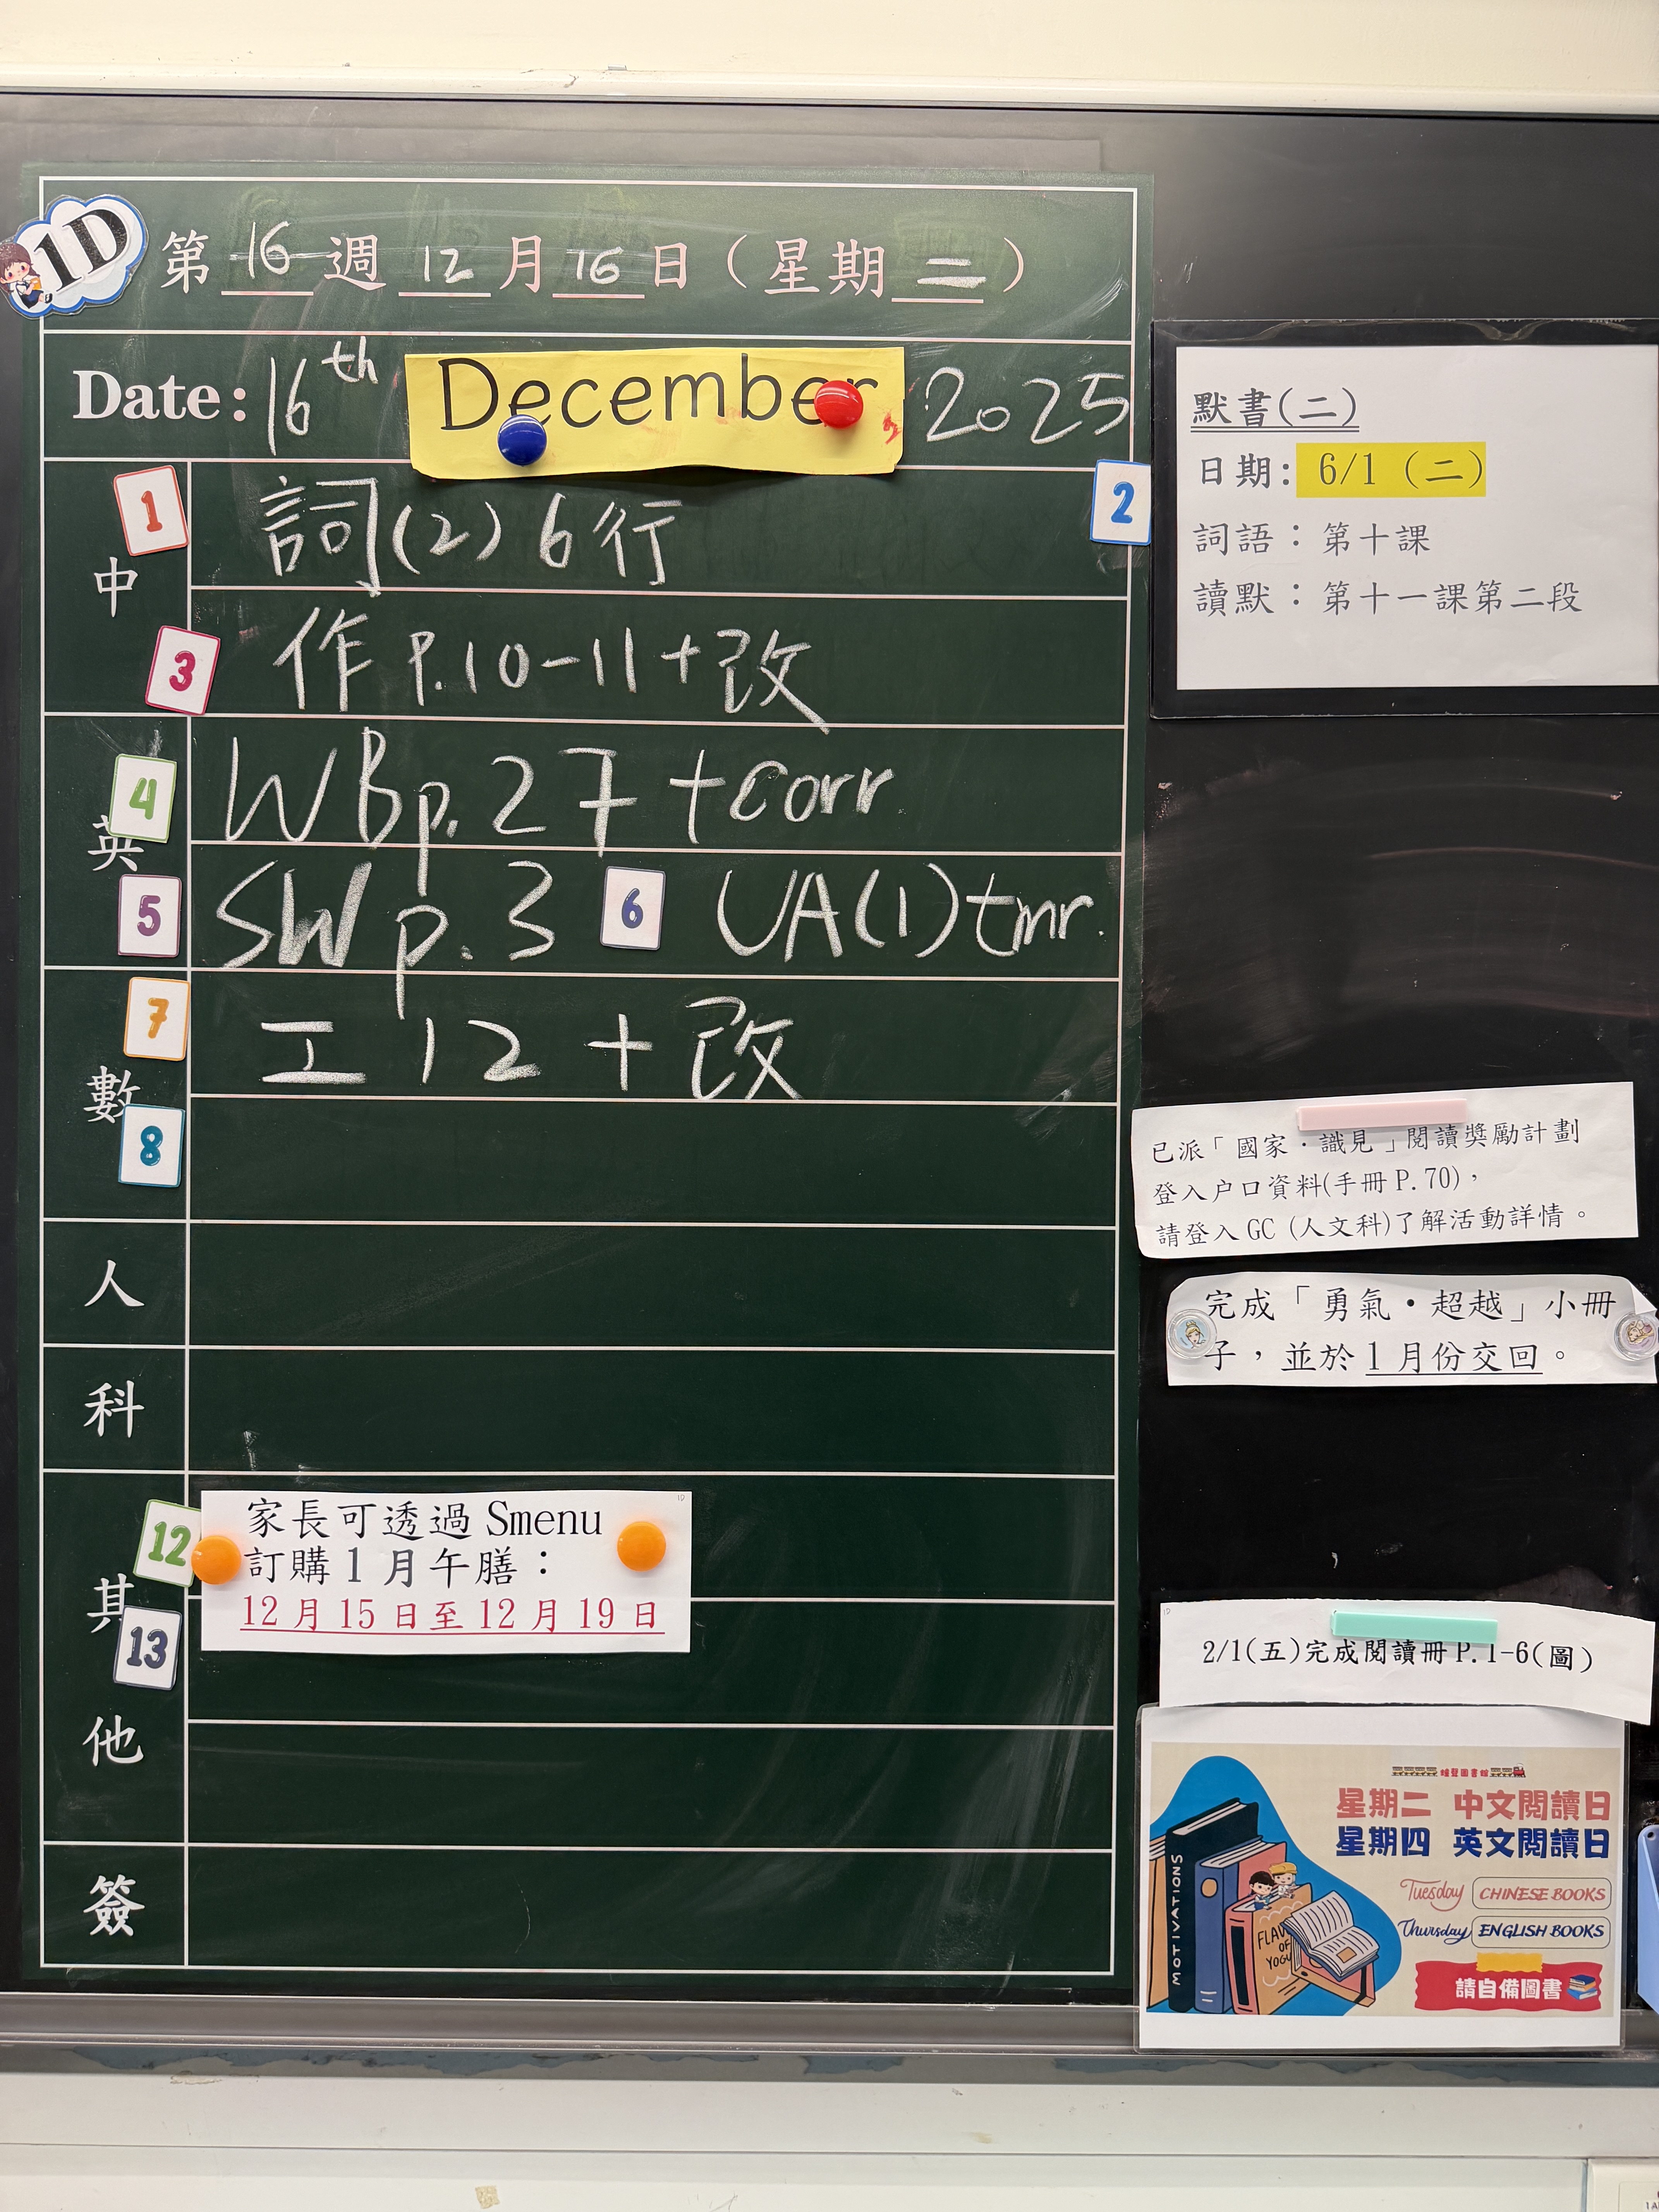 1D
第 16 週 12 月 16 日 (星期 二)
Date: 16th December 2025
中
1
詞(2) 6行
2
3
作 P.10-11+改
英
4
WB p.27 +corr
5
SW p.3 6 UA(1) tmr.
數
7
工 12 + 改
8
人
科
其他
12
家長可透過 Smenu
訂購 1 月午膳：
12 月 15 日至 12 月 19 日
13
簽
默書(二)
日期: 6/1 (二)
詞語：第十課
讀默：第十一課第二段
已派「國家·識見」閱讀獎勵計劃
登入户口資料(手冊 P.70)，
請登入 GC (人文科)了解活動詳情。
完成「勇氣·超越」小冊
子，並於 1 月份交回。
1D
2/1(五)完成閱讀冊 P.1-6(圖)
星期二 中文閱讀日
星期四 英文閱讀日
Tuesday CHINESE BOOKS
Thursday ENGLISH BOOKS
請自備圖書
MOTIVATIONS
FLAV
OF
YOGU